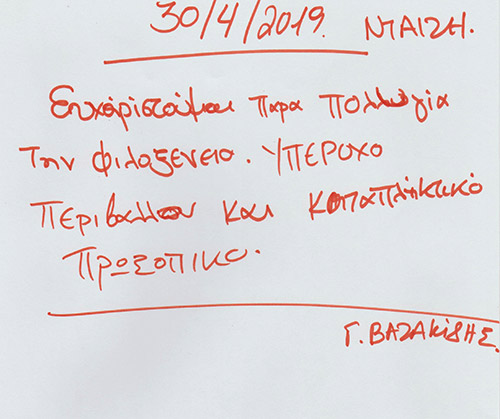 30/4/2019. ΝΤΑΙΖΗ.
Ευχαριστούμαι παρα πολλυ για
την φιλοξενεια. ΥΠΕΡΟΧΟ
ΠΕΡΙβαλλον και καταπληκτικό
ΠΡΩΣΟΠΙΚΟ.
Γ. ΒΑΖΑΚίΔΗΣ.